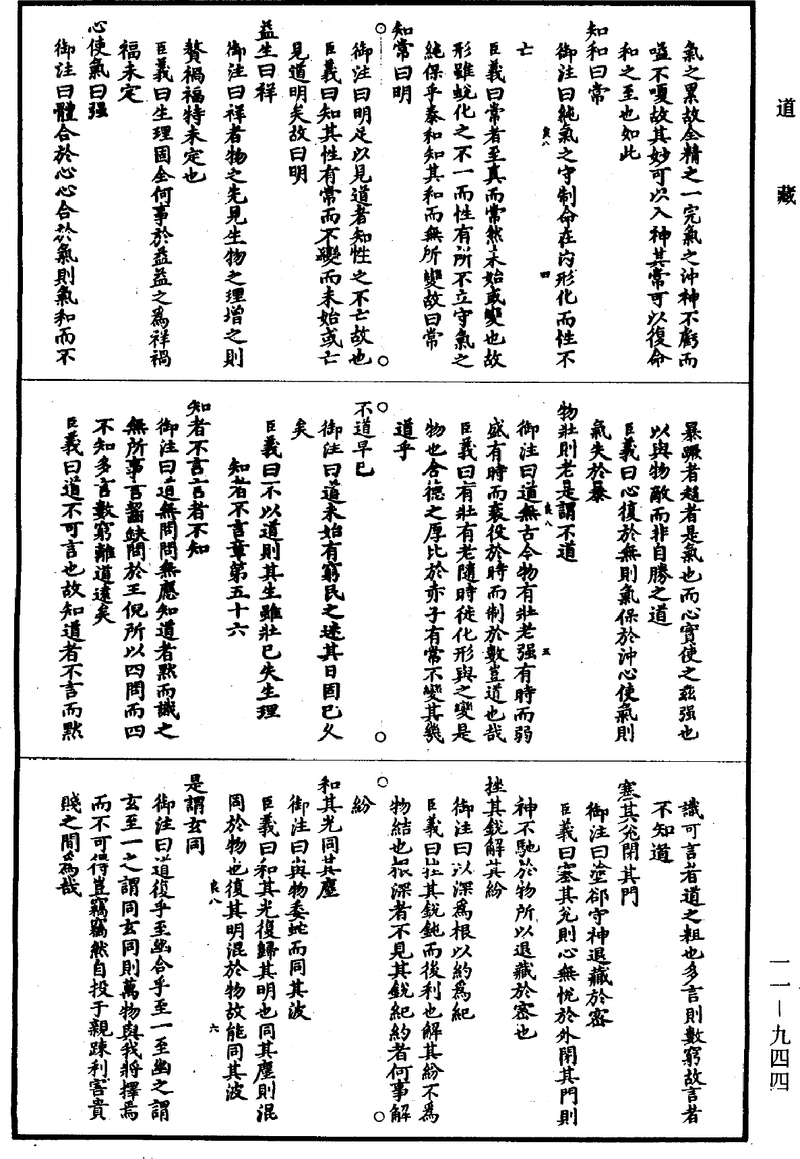 道藏
氣之累故全精之一完氣之沖神不虧而
嗌不嗄故其妙可以入神其常可以復命
和之至也如此
知和曰常
御注曰純氣之守制命在內形化而性不
良八 四
亡
臣義曰常者至真而常然未始或變也故
形雖蛻化之不一而性有所不立守氣之
純保乎泰和知其和而無所變故曰常
知常曰明
御注曰明足以見道者知性之不亡故也
臣義曰知其性有常而不變而未始或亡
見道明矣故曰明
益生曰祥
御注曰祥者物之先見生物之理增之則
贅禍福特未定也
臣義曰生理固全何事於益益之為祥禍
福未定
心使氣曰强
御注曰體合於心心合於氣則氣和而不
暴蹶者趨者是氣也而心實使之茲强也
以與物敵而非自勝之道
臣義曰心復於無則氣保於沖心使氣則
氣失於暴
物壯則老是謂不道
良八 五
御注曰道無古今物有壯老强有時而弱
盛有時而衰役於時而制於數豈道也哉
臣義曰有壯有老隨時徒化形與之變是
物也含德之厚比於赤子有常不變其幾
道乎
不道早已
御注曰道未始有窮民之迷其日固已久
矣
臣義曰不以道則其生雖壯已失生理
知者不言章第五十六
知者不言言者不知
御注曰道無問問無應知道者默而識之
無所事言齧缺問於王倪所以四問而四
不知多言數窮離道遠矣
臣義曰道不可言也故知道者不言而默
識可言者道之粗也多言則數窮故言者
不知道
塞其兌閉其門
御注曰塗郤守神退藏於密
臣義曰塞其兌則心無悅於外閉其門則
神不馳於物所以退藏於密也
挫其銳解其紛
御注曰以深為根以約為紀
臣義曰挫其銳鈍而後利也解其紛不為
物結也根深者不見其銳紀約者何事解
紛
和其光同其塵
御注曰與物委蛇而同其波
臣義曰和其光復歸其明也同其塵則混
同於物也復其明混於物故能同其波
良八 六
是謂玄同
御注曰道復乎至幽合乎至一至幽之謂
玄至一之謂同玄同則萬物與我將擇焉
而不可得豈竊竊然自投于親踈利害貴
賤之間為哉
一一—九四四